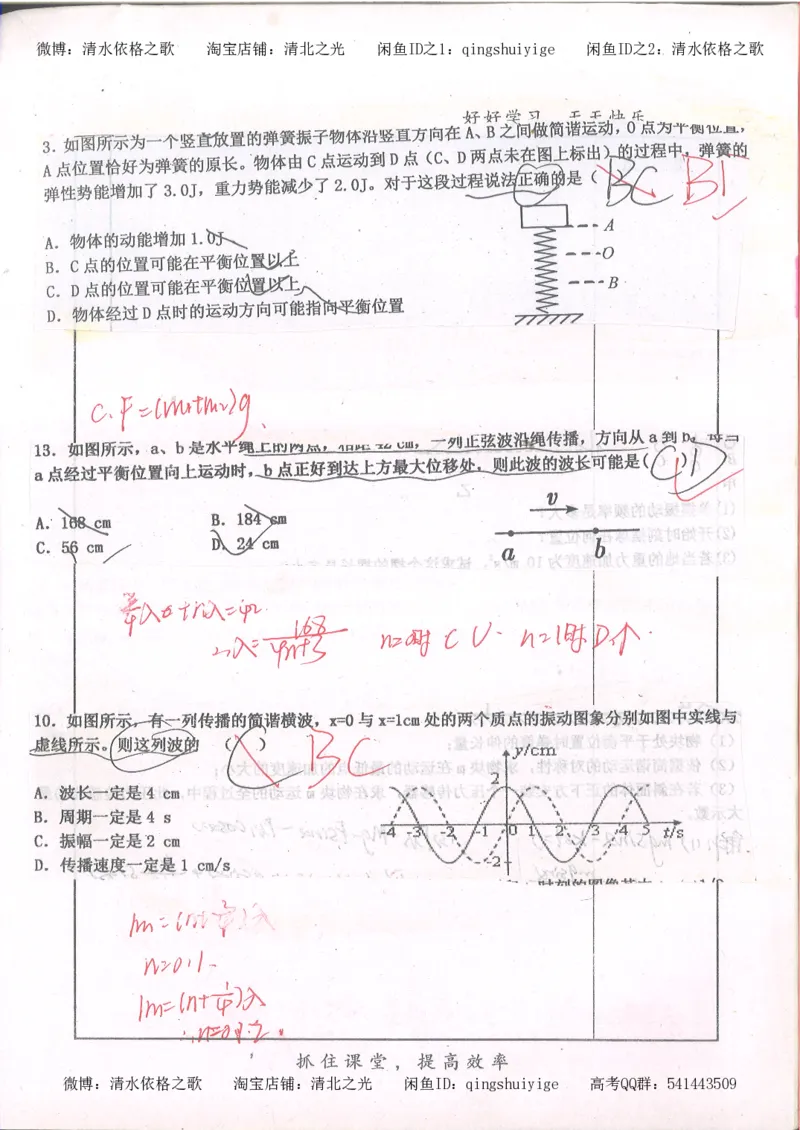 微博：清水依格之歌 淘宝店铺：清北之光 闲鱼ID之1：qingshuiyige 闲鱼ID之2：清水依格之歌
好好学习，天天快乐
3. 如图所示为一个竖直放置的弹簧振子物体沿竖直方向在 A、B 之间做简谐运动，O 点为平衡位置，
A 点位置恰好为弹簧的原长。物体由 C 点运动到 D 点（C、D 两点未在图上标出）的过程中，弹簧的
弹性势能增加了 3.0J，重力势能减少了 2.0J。对于这段过程说法正确的是（ ）
BC
A
O
B
A. 物体的动能增加 1.0J
B. C 点的位置可能在平衡位置以上
C. D 点的位置可能在平衡位置以上
D. 物体经过 D 点时的运动方向可能指向平衡位置
C. F=(m₁+m₂)g
13. 如图所示，a、b 是水平绳上的两点，相距 42 cm，一列正弦波沿绳传播，方向从 a 到 b，每当
a 点经过平衡位置向上运动时，b 点正好到达上方最大位移处，则此波的波长可能是( )
CD
A. 168 cm
B. 184 cm
C. 56 cm
D. 24 cm
v
a
b
168
n=1时D个
10. 如图所示，有一列传播的简谐横波，x=0 与 x=1cm 处的两个质点的振动图象分别如图中实线与
虚线所示。则这列波的 （ ）
BC
A. 波长一定是 4 cm
B. 周期一定是 4 s
C. 振幅一定是 2 cm
D. 传播速度一定是 1 cm/s
y/cm
2
-4 -3 -2 -1 0 1 2 3 4 5 t/s
-2
n=0.1.
抓住课堂，提高效率
微博：清水依格之歌 淘宝店铺：清北之光 闲鱼ID：qingshuiyige 高考QQ群：541443509